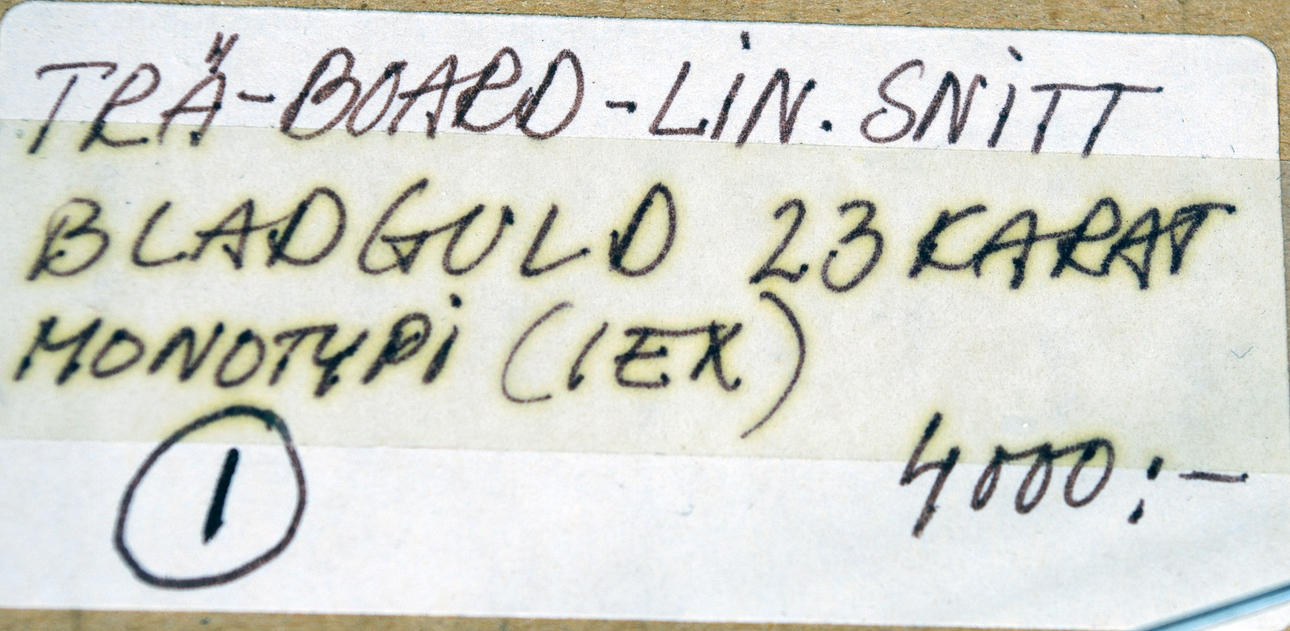 TRÄ-BOARD-LIN. SNITT
BLADGULD 23 KARAT
MONOTYPI (1EX)
1
4000:-